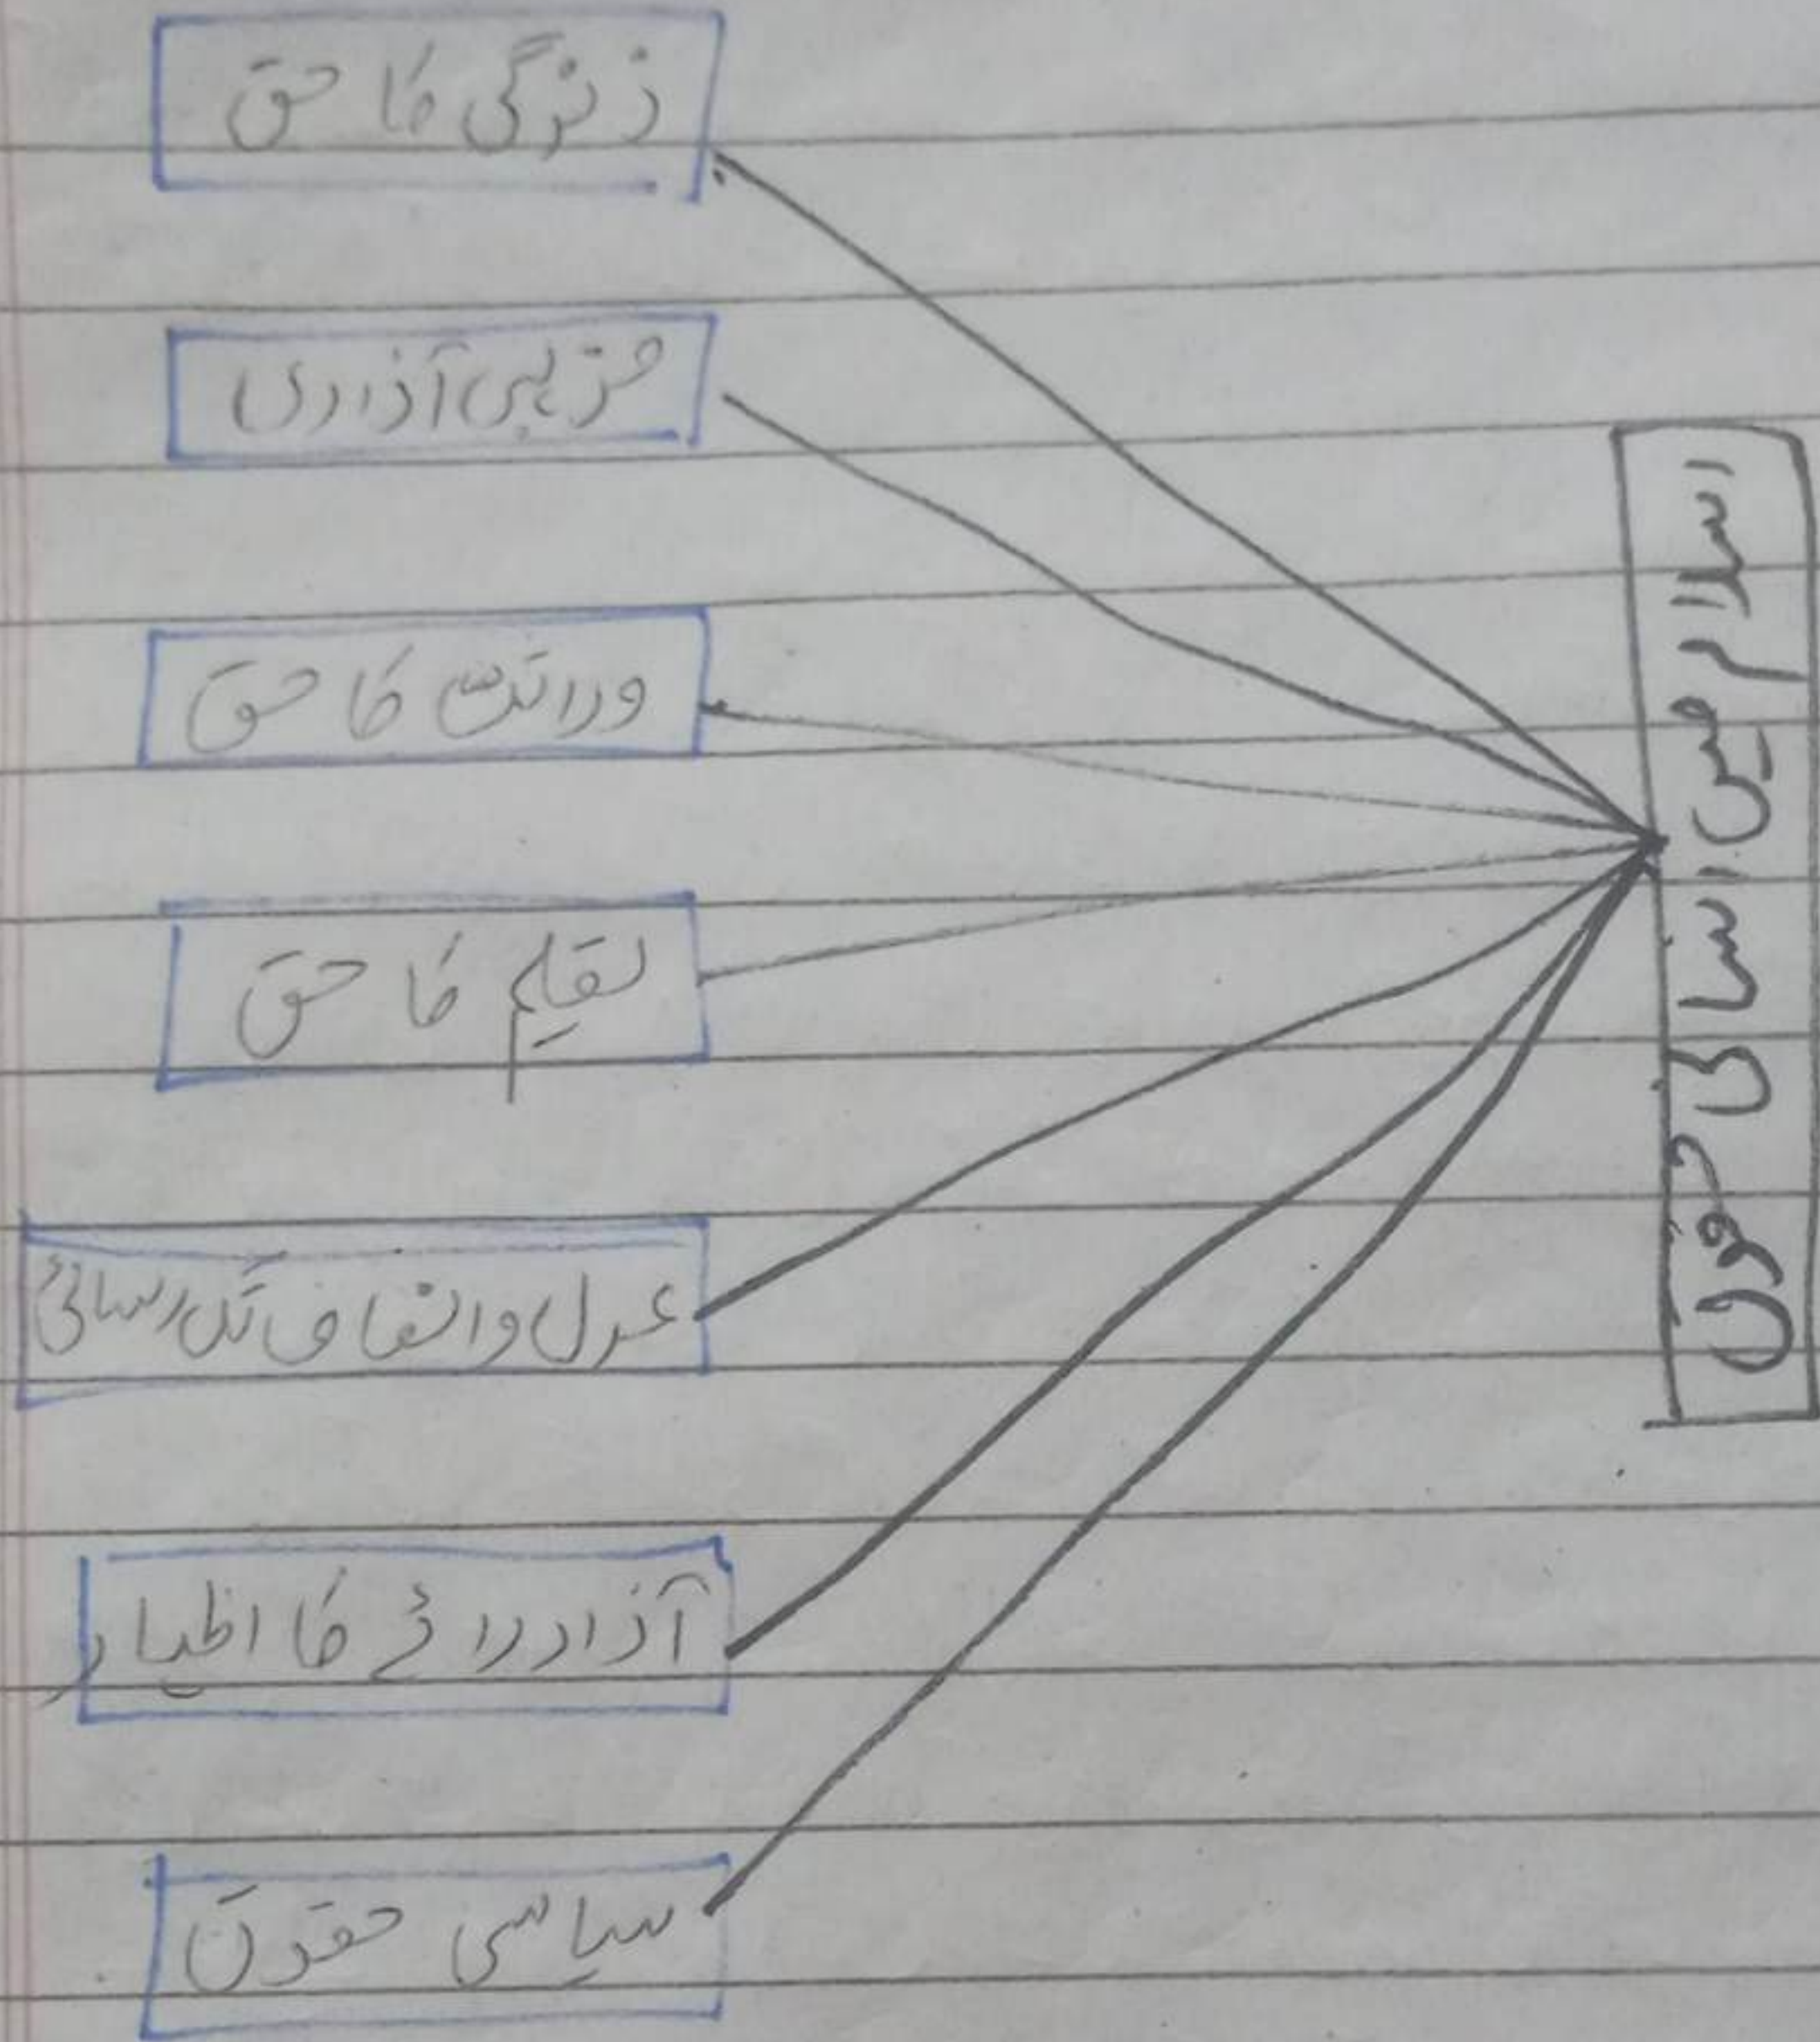 اسلام میں اساسی حقوق
زندگی کا حق
مذہبی آزادی
وراثت کا حق
تعلیم کا حق
عدل و انصاف تک رسائی
آزاد رائے کا اظہار
سیاسی حقوق